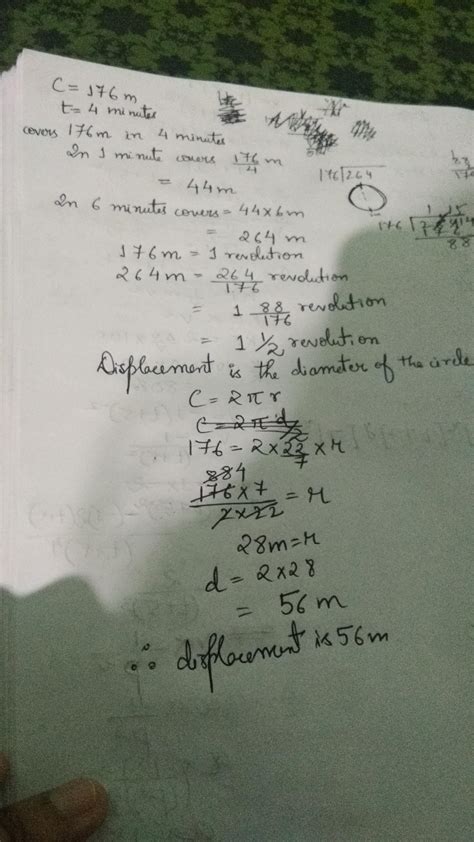 C = 176 m
t = 4 minutes
covers 176m in 4 minutes
In 1 minute covers 176/4 m
= 44m
In 6 minutes covers = 44×6m
= 264 m
176m = 1 revolution
264m = 264/176 revolution
= 1 88/176 revolution
= 1 1/2 revolution
Displacement is the diameter of the circle
C = 2πr
176 = 2×22/7×r
176×7/2×22 = r
28m = r
d = 2×28
= 56 m
∴ displacement is 56m
176 264